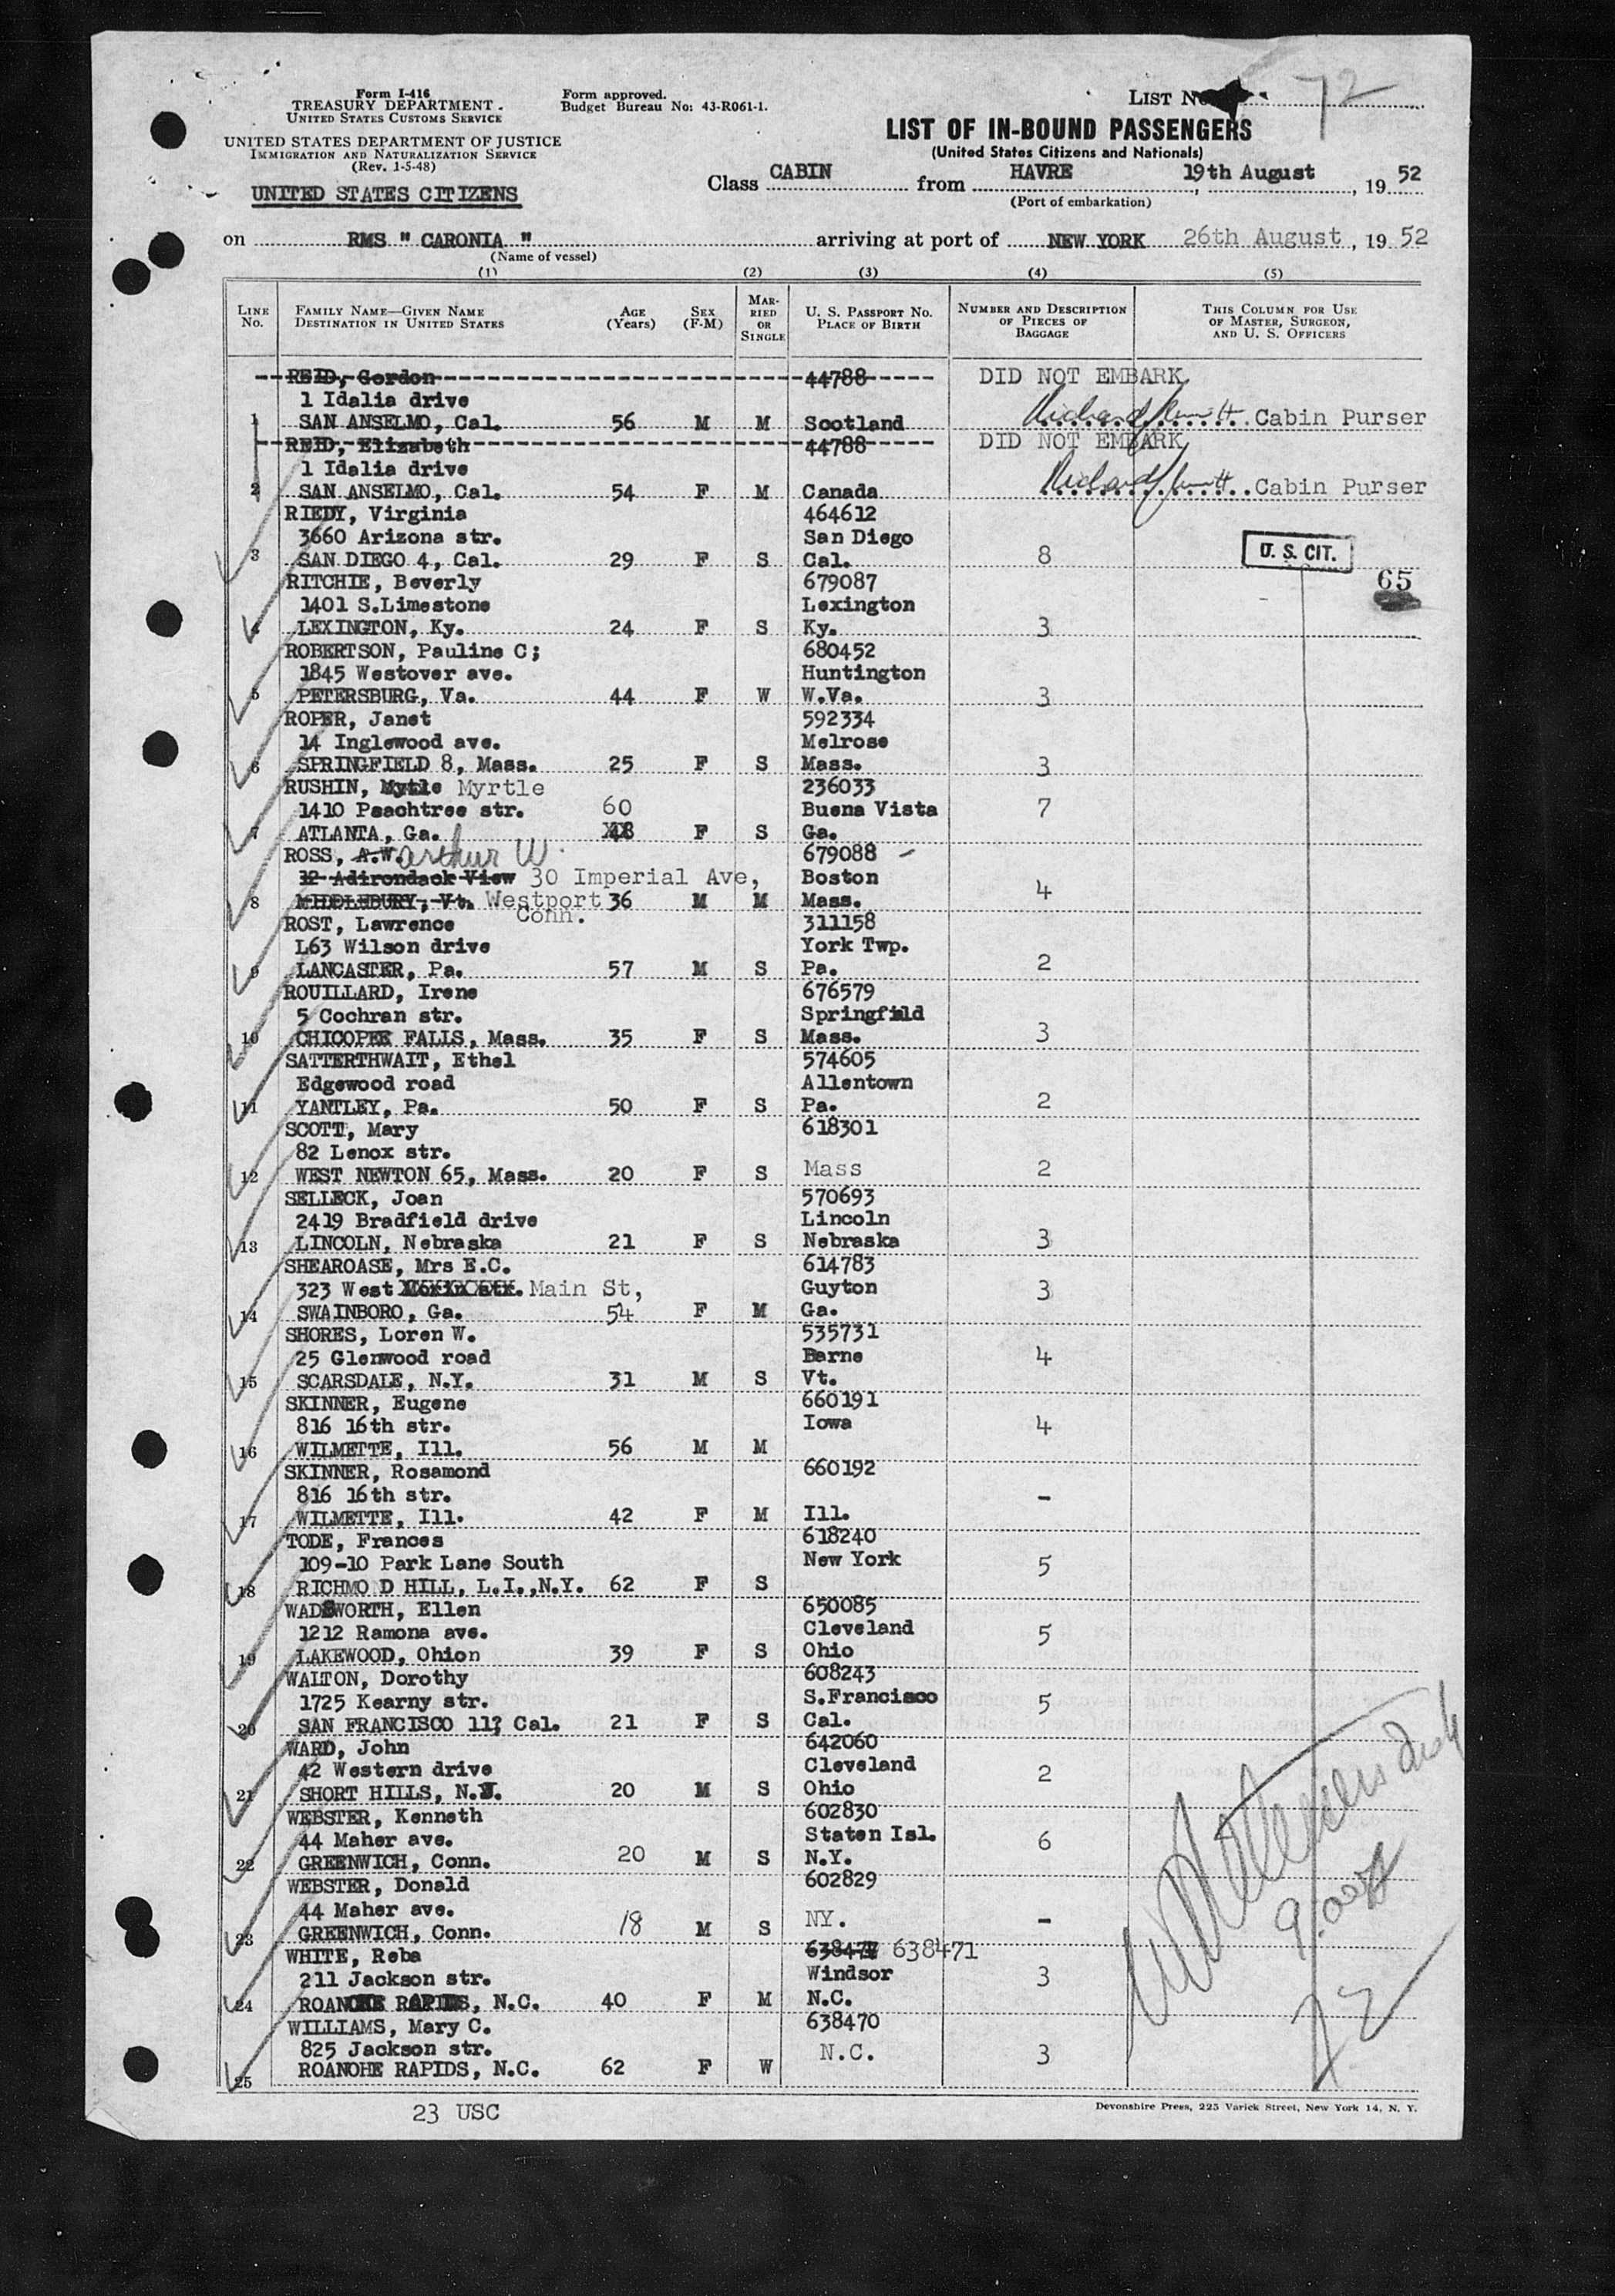 Form I-416
TREASURY DEPARTMENT
UNITED STATES CUSTOMS SERVICE
UNITED STATES DEPARTMENT OF JUSTICE
IMMIGRATION AND NATURALIZATION SERVICE
(Rev. 1-5-48)
UNITED STATES CITIZENS
Form approved.
Budget Bureau No: 43-R061-1.
LIST No. 72
LIST OF IN-BOUND PASSENGERS
(United States Citizens and Nationals)
Class CABIN from HAVRE, 19th August, 19 52
(Port of embarkation)
on RMS " CARONIA " arriving at port of NEW YORK 26th August, 19 52
(Name of vessel)
(1) (2) (3) (4) (5)
LINE No. FAMILY NAME—GIVEN NAME DESTINATION IN UNITED STATES AGE (Years) SEX (F-M) MARRIED OR SINGLE U. S. PASSPORT No. PLACE OF BIRTH NUMBER AND DESCRIPTION OF PIECES OF BAGGAGE THIS COLUMN FOR USE OF MASTER, SURGEON, AND U. S. OFFICERS
REID, Gordon 44788 DID NOT EMBARK
1 Idalia drive
1 SAN ANSELMO, Cal. 56 M M Scotland Cabin Purser
REID, Elizabeth 44788 DID NOT EMBARK
1 Idalia drive
2 SAN ANSELMO, Cal. 54 F M Canada Cabin Purser
RIEDY, Virginia 464612
3660 Arizona str. San Diego
3 SAN DIEGO 4, Cal. 29 F S Cal. 8 U. S. CIT.
RITCHIE, Beverly 679087 65
1401 S.Limestone Lexington
4 LEXINGTON, Ky. 24 F S Ky. 3
ROBERTSON, Pauline C; 680452
1845 Westover ave. Huntington
5 PETERSBURG, Va. 44 F W W.Va. 3
ROPER, Janet 592334
14 Inglewood ave. Melrose
6 SPRINGFIELD 8, Mass. 25 F S Mass. 3
RUSHIN, Mytle Myrtle 236033
1410 Peachtree str. 60 Buena Vista 7
7 ATLANTA, Ga. 48 F S Ga.
ROSS, A.W. Arthur W. 679088
12 Adirondack View 30 Imperial Ave, Boston
8 MIDDLEBURY, Vt. Westport 36 M M Mass. 4
Conn.
ROST, Lawrence 311158
L63 Wilson drive York Twp.
9 LANCASTER, Pa. 57 M S Pa. 2
ROUILLARD, Irene 676579
5 Cochran str. Springfield
10 CHICOPEE FALLS, Mass. 35 F S Mass. 3
SATTERTHWAIT, Ethel 574605
Edgewood road Allentown
11 YANTLEY, Pa. 50 F S Pa. 2
SCOTT, Mary 618301
82 Lenox str.
12 WEST NEWTON 65, Mass. 20 F S Mass 2
SELLECK, Joan 570693
2419 Bradfield drive Lincoln
13 LINCOLN, Nebraska 21 F S Nebraska 3
SHEAROASE, Mrs E.C. 614783
323 West Main St, Guyton 3
14 SWAINBORO, Ga. 54 F M Ga.
SHORES, Loren W. 535731
25 Glenwood road Barne 4
15 SCARSDALE, N.Y. 31 M S Vt.
SKINNER, Eugene 660191
816 16th str. Iowa 4
16 WILMETTE, Ill. 56 M M
SKINNER, Rosamond 660192
816 16th str. -
17 WILMETTE, Ill. 42 F M Ill.
TODE, Frances 618240
109-10 Park Lane South New York 5
18 RICHMO D HILL, L.I.,N.Y. 62 F S
WADSWORTH, Ellen 650085
1212 Ramona ave. Cleveland 5
19 LAKEWOOD, Ohion 39 F S Ohio
WALTON, Dorothy 608243
1725 Kearny str. S.Francisco 5
20 SAN FRANCISCO 11? Cal. 21 F S Cal.
WARD, John 642060
42 Western drive Cleveland 2
21 SHORT HILLS, N.J. 20 M S Ohio
WEBSTER, Kenneth 602830
44 Maher ave. Staten Isl. 6
22 GREENWICH, Conn. 20 M S N.Y.
WEBSTER, Donald 602829
44 Maher ave. NY. -
23 GREENWICH, Conn. 18 M S
WHITE, Reba 638471
211 Jackson str. Windsor 3
24 ROANOKE RAPIDS, N.C. 40 F M N.C.
WILLIAMS, Mary C. 638470
825 Jackson str. N.C. 3
25 ROANOHE RAPIDS, N.C. 62 F W
72
23 USC
Devonshire Press, 225 Varick Street, New York 14, N. Y.